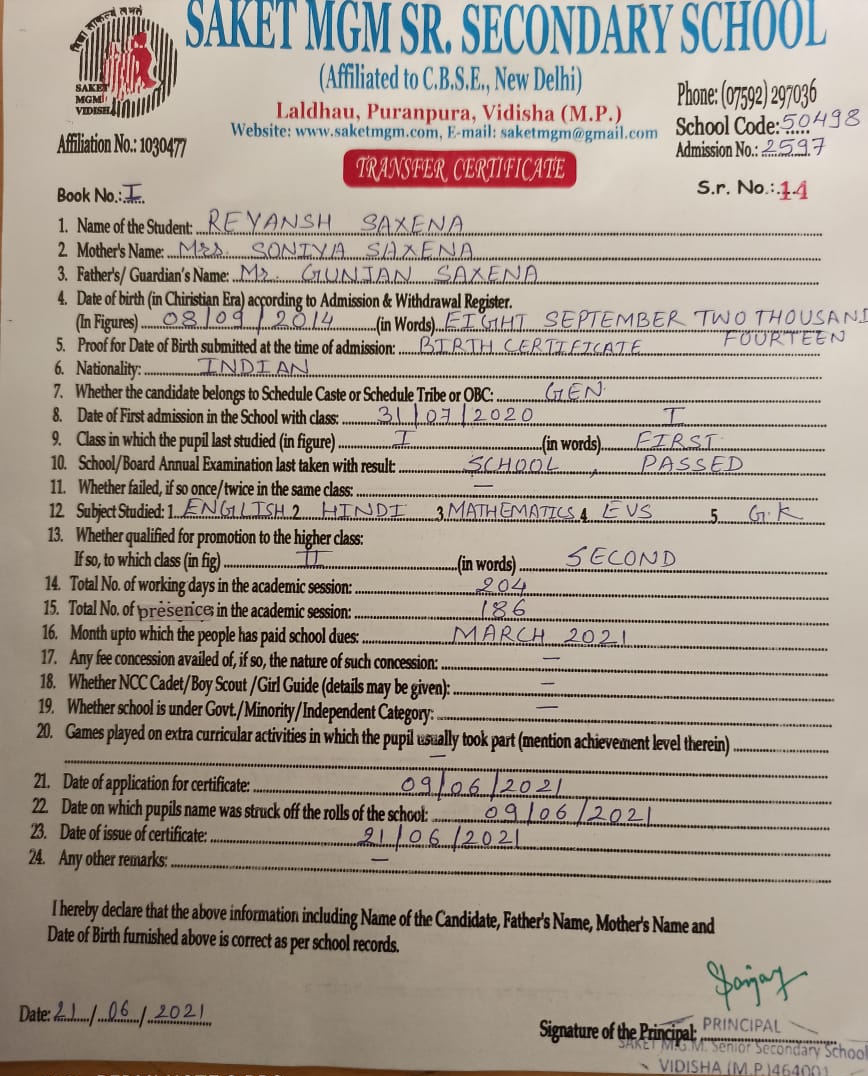 SAKET MGM SR. SECONDARY SCHOOL
(Affiliated to C.B.S.E., New Delhi)
SAKET
MGM
VIDISHA
Laldhau, Puranpura, Vidisha (M.P.)
Website: www.saketmgm.com, E-mail: saketmgm@gmail.com
Phone: (07592) 297036
School Code: 50498
Admission No.: 2597
Affiliation No.: 1030477
TRANSFER CERTIFICATE
Book No.: I
S.r. No.: 14
1. Name of the Student: REYANSH SAXENA
2. Mother's Name: Mrs. SONIYA SAXENA
3. Father's/ Guardian's Name: Mr. GUNJAN SAXENA
4. Date of birth (in Chiristian Era) according to Admission & Withdrawal Register.
(In Figures) 08/09/2014 (in Words) EIGHT SEPTEMBER TWO THOUSAND
FOURTEEN
5. Proof for Date of Birth submitted at the time of admission: BIRTH CERTIFICATE
6. Nationality: INDIAN
7. Whether the candidate belongs to Schedule Caste or Schedule Tribe or OBC: GEN
8. Date of First admission in the School with class: 31/07/2020 I
9. Class in which the pupil last studied (in figure) I (in words) FIRST
10. School/Board Annual Examination last taken with result: SCHOOL, PASSED
11. Whether failed, if so once/twice in the same class: —
12. Subject Studied: 1. ENGLISH 2. HINDI 3. MATHEMATICS 4. EVS 5. G.K
13. Whether qualified for promotion to the higher class:
If so, to which class (in fig) II (in words) SECOND
14. Total No. of working days in the academic session: 204
15. Total No. of presence in the academic session: 186
16. Month upto which the people has paid school dues: MARCH 2021
17. Any fee concession availed of, if so, the nature of such concession: —
18. Whether NCC Cadet/Boy Scout /Girl Guide (details may be given): —
19. Whether school is under Govt./Minority/Independent Category: —
20. Games played on extra curricular activities in which the pupil usually took part (mention achievement level therein)
—
21. Date of application for certificate: 09/06/2021
22. Date on which pupils name was struck off the rolls of the school: 09/06/2021
23. Date of issue of certificate: 21/06/2021
24. Any other remarks: —
I hereby declare that the above information including Name of the Candidate, Father's Name, Mother's Name and
Date of Birth furnished above is correct as per school records.
Date: 21/06/2021
Signature of the Principal:
PRINCIPAL
SAKET M.G.M. Senior Secondary School
VIDISHA (M.P.) 464001